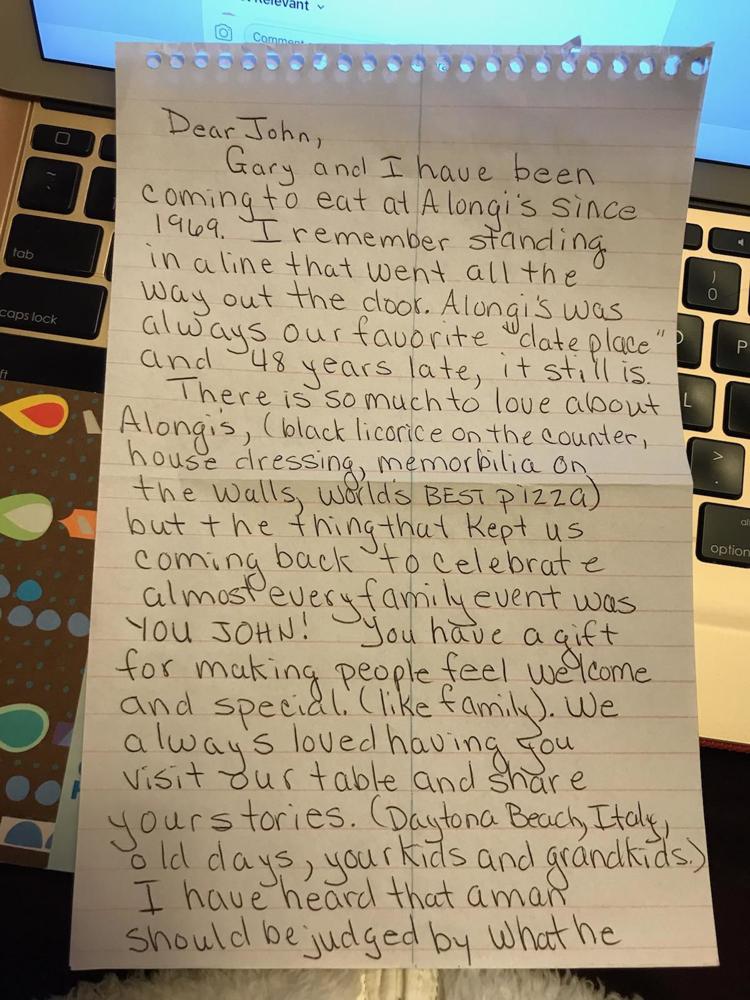 Relevant
Comment
tab
caps lock
Dear John,
Gary and I have been
coming to eat at Alongi's since
1969. I remember standing
in a line that went all the
way out the door. Alongi's was
always our favorite "date place"
and 48 years late, it still is.
There is so much to love about
Alongi's, (black licorice on the counter,
house dressing, memorbilia on
the walls, world's BEST pizza)
but the thing that kept us
coming back to celebrate
almost every family event was
YOU JOHN! You have a gift
for making people feel welcome
and special. (like family). We
always loved having you
visit our table and share
your stories. (Daytona Beach, Italy,
old days, your kids and grandkids.)
I have heard that a man
should be judged by what he
)
0
P
L
>
.
option